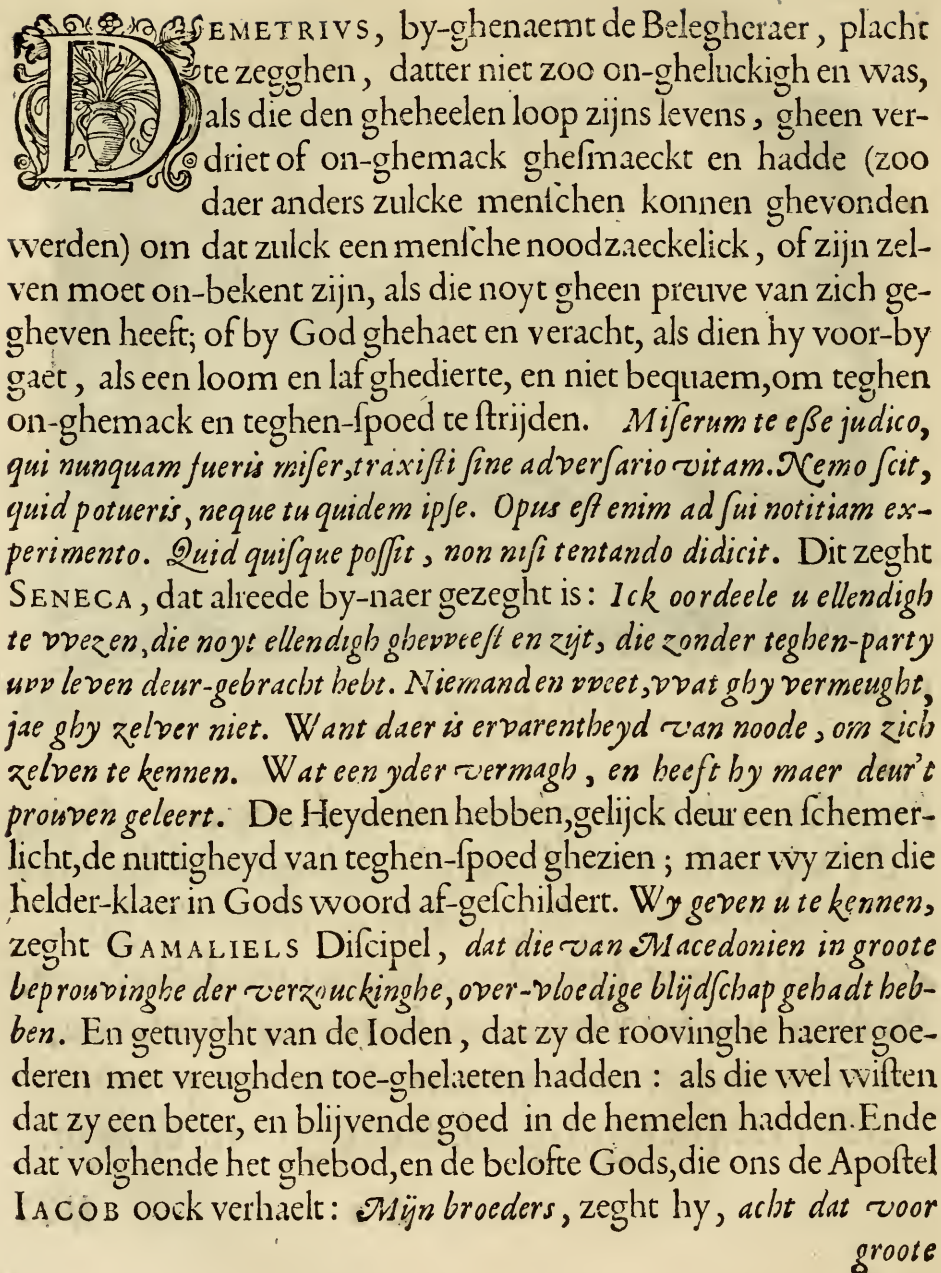 DEMETRIVS, by-ghenaemt de Belegheraer, placht
te zegghen, datter niet zoo on-gheluckigh en was,
als die den gheheelen loop zijns levens, gheen ver-
driet of on-ghemack gheſmaeckt en hadde (zoo
daer anders zulcke menſchen konnen ghevonden
werden) om dat zulck een menſche noodzaeckelick, of zijn zel-
ven moet on-bekent zijn, als die noyt gheen preuve van zich ge-
gheven heeft; of by God ghehaet en veracht, als dien hy voor-by
gaet, als een loom en laf ghedierte, en niet bequaem, om teghen
on-ghemack en teghen-ſpoed te ſtrijden. Miſerum te eſſe judico,
qui nunquam fueris miſer, traxiſti ſine adverſario vitam. Nemo ſcit,
quid potueris, neque tu quidem ipſe. Opus eſt enim ad ſui notitiam ex-
perimento. Quid quiſque poſſit, non niſi tentando didicit. Dit zeght
SENECA, dat alreede by-naer gezeght is: Ick oordeele u ellendigh
te vvezen, die noyt ellendigh ghevveeſt en zijt, die zonder teghen-party
uvv leven deur-gebracht hebt. Niemand en vveet, vvat ghy vermeught,
jae ghy zelver niet. Want daer is ervarentheyd van noode, om zich
zelven te kennen. Wat een yder vermagh, en heeft hy maer deur't
prouven geleert. De Heydenen hebben, gelijck deur een ſchemer-
licht, de nuttigheyd van teghen-ſpoed ghezien; maer wy zien die
helder-klaer in Gods woord af-geſchildert. Wy geven u te kennen,
zeght GAMALIELS Diſcipel, dat die van Macedonien in groote
beprouvinghe der verzouckinghe, over-vloedige blijdſchap gehadt heb-
ben. En getuyght van de Ioden, dat zy de roovinghe haerer goe-
deren met vreughden toe-ghelaeten hadden: als die wel wiſten
dat zy een beter, en blijvende goed in de hemelen hadden. Ende
dat volghende het ghebod, en de belofte Gods, die ons de Apoſtel
IACOB oock verhaelt: Mijn broeders, zeght hy, acht dat voor
groote